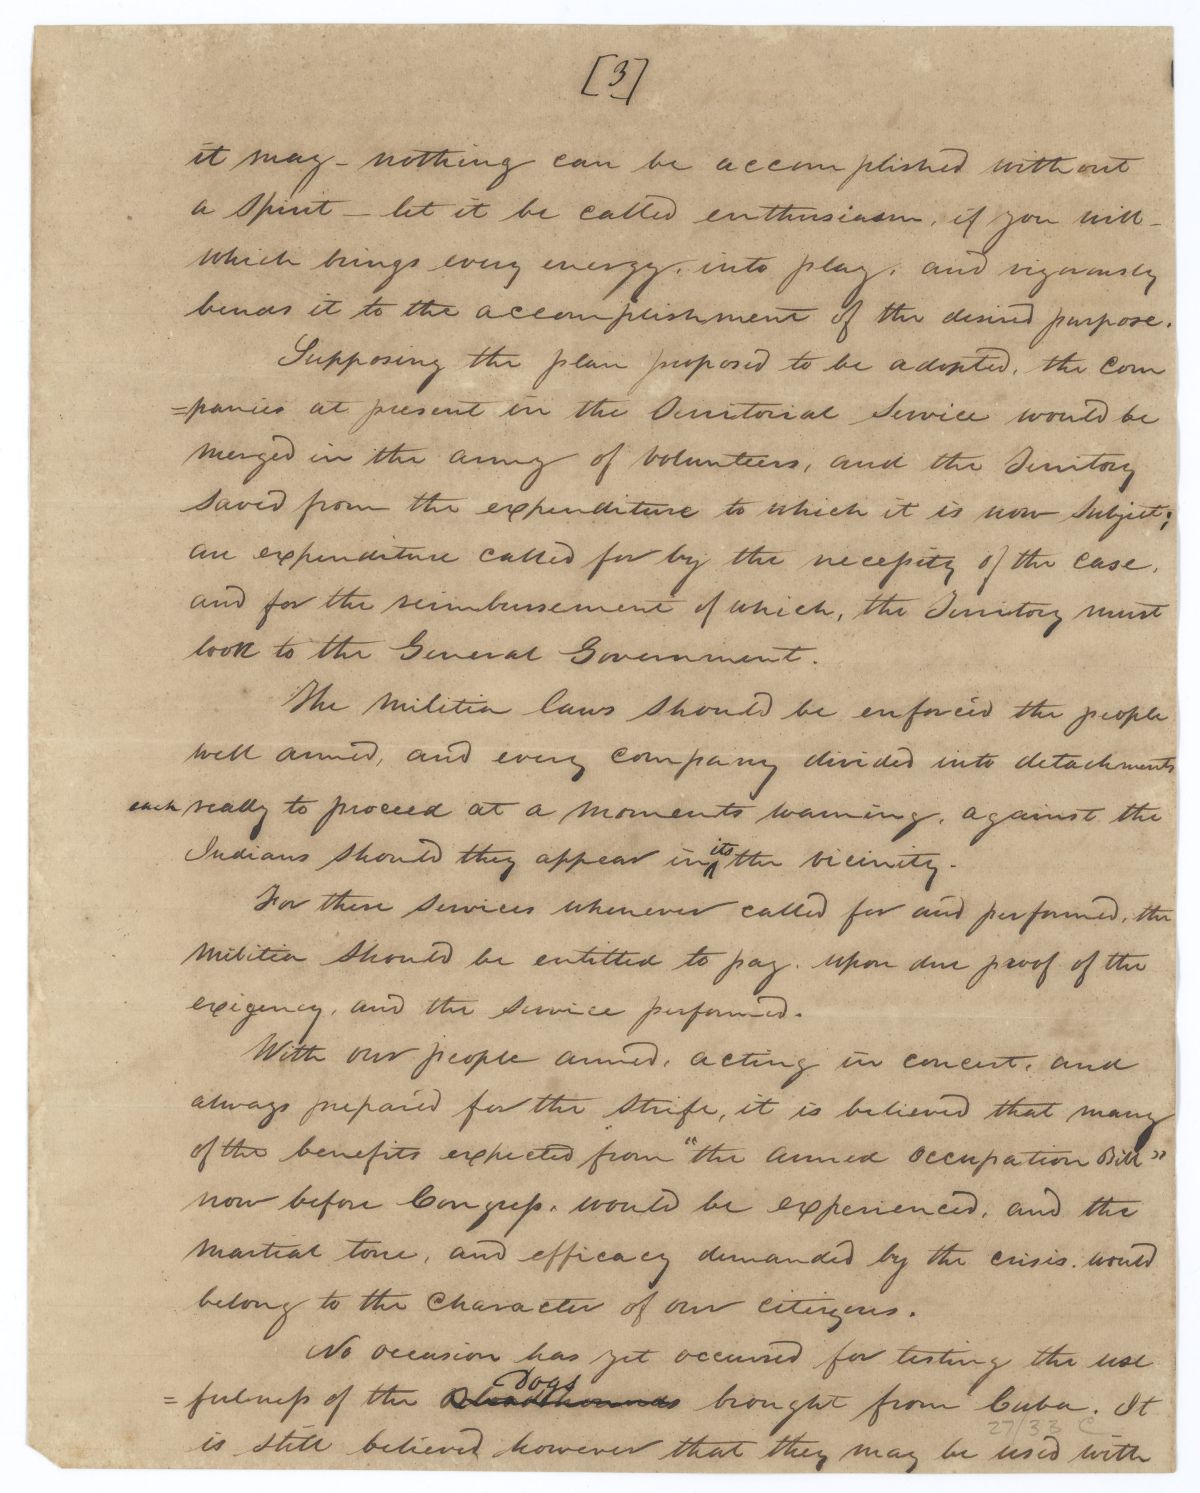 [3]
it may – nothing can be accomplished without
a spirit – let it be called enthusiasm, if you will –
which brings every energy, into play, and vigorously
bends it to the accomplishment of the desired purpose.
Supposing the plan proposed to be adopted, the com
=panies at present in the Territorial Service would be
merged in the army of volunteers, and the Territory
saved from the expenditure to which it is now subject;
an expenditure called for by the necessity of the case,
and for the reimbursement of which, the Territory must
look to the General Government.
The Militia laws should be enforced the people
well armed, and every company divided into detachments
each ready to proceed at a moments warning, against the
Indians should they appear in its the vicinity.
For these services whenever called for and performed, the
Militia should be entitled to pay, upon due proof of the
exigency, and the service performed.
With our people armed, acting in concert, and
always prepared for the strife, it is believed that many
of the benefits expected from "the armed occupation Bill"
now before Congress, would be experienced, and the
martial tone, and efficacy demanded by the crisis, would
belong to the character of our citizens.
No occasion has yet occurred for testing the use
=fulness of the Bloodhounds Dogs brought from Cuba. It
is still believed however that they may be used with
27/3B C